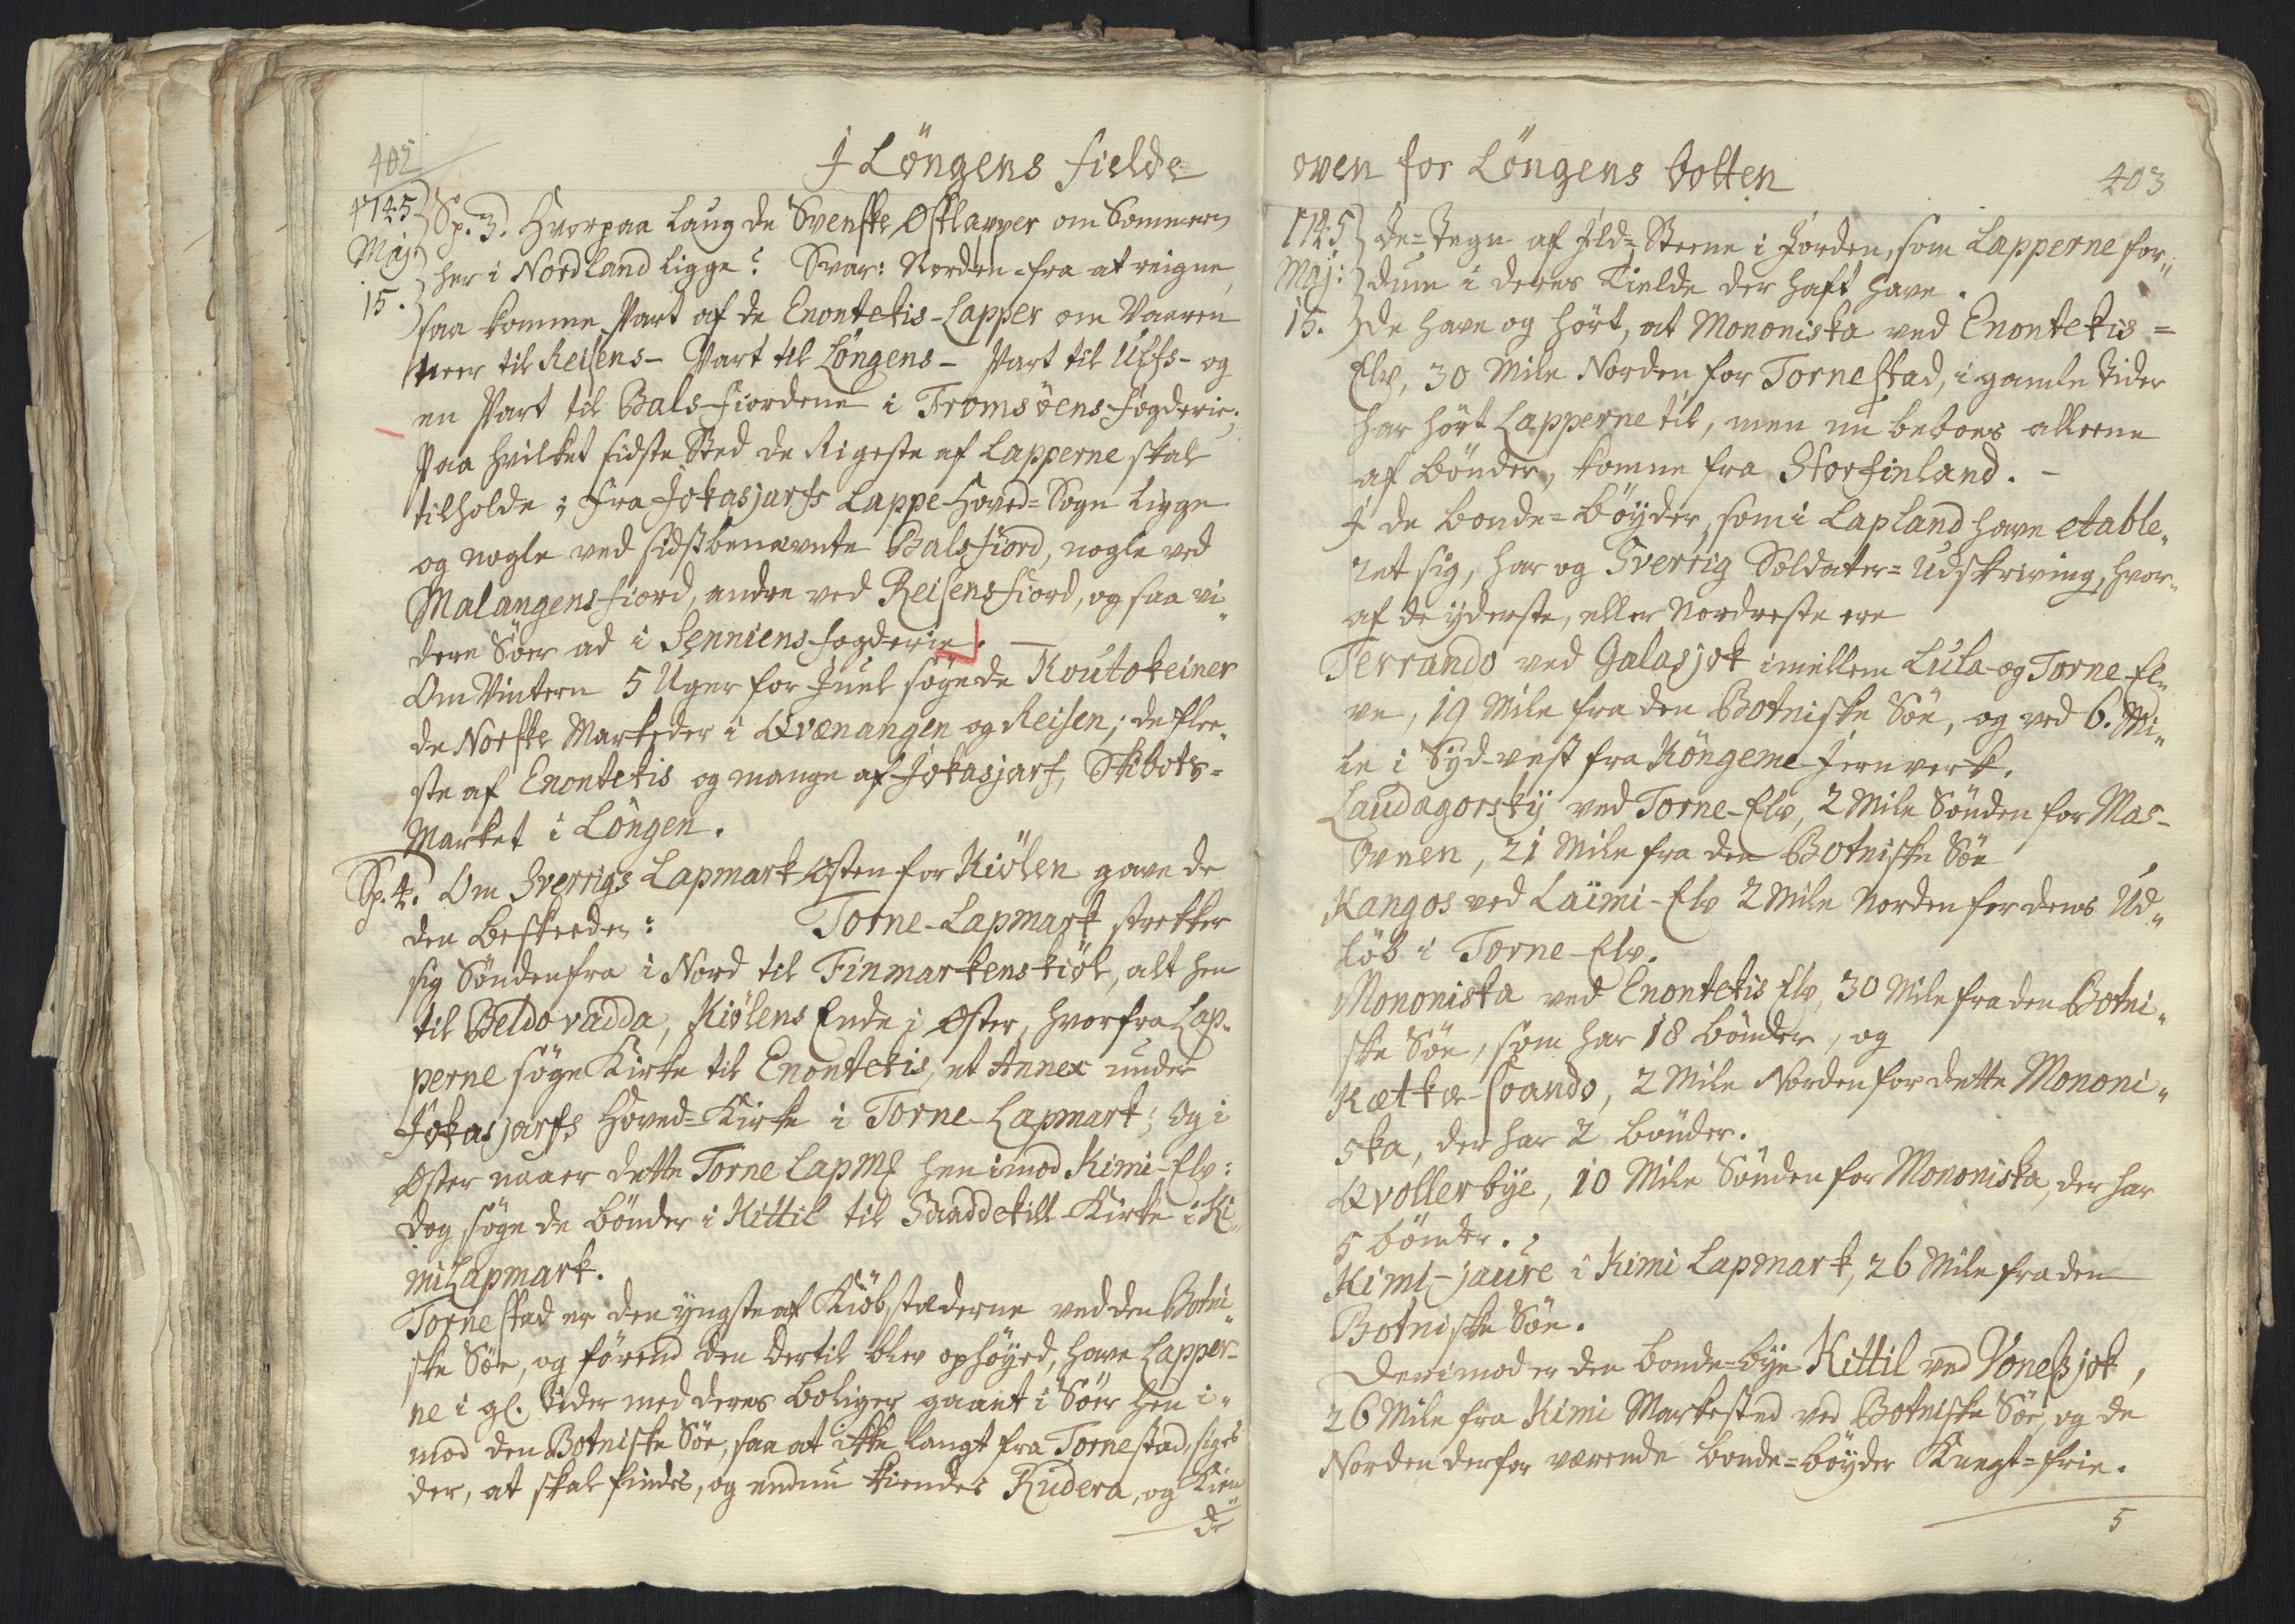 402
I Löngens fielde
1745
Maj:
15.
Sp. 3. Hvorpaa laug de Svenske Østlapper om Sommeren
her i Nordland ligge? Svar: Norden-fra at reigne,
saa komme Part af de Enontekis-Lapper om Vaaren
neer til Reisens- Part til Löngens- Part til Ulfs- og
en Part til Bals-fiordene i Tromsöens fogderie;
Paa hvilket sidste Sted de Rigeste af Lapperne skal
tilholde; fra Jokasjarfs Lappe-Hoved-Sogn ligge
og nogle ved sidstbenævnte Balsfiord, nogle ved
Malangens fiord, andre ved Reisensfiord, og saa vi„
dere Söer ad i Senniens fogderie. —
Om Vintern 5 Uger for Juul søge de Koutokeiner
de Norske Markeder i Qvænangen og Reisen; de flee„
ste af Enontekis og mange af Jokasjarf, Skibots-
Market i Löngen.
Sp. 4. Om Sverrigs Lapmark Østen for Kiölen gave de
den Beskeeden: Torne-Lapmark strekker
sig Söndenfra i Nord til Finmarkens kiöl, alt hen
til Beldovadda, Kiölens Ende i Øster, hvorfra Lap-
perne søge Kirke til Enontekis, et Annex under
Jokasjarfs Hoved-Kirke i Torne-Lapmark; Og i
Øster naaer dette Torne LapMk hen imod Kimi-Elv:
dog søge de bönder i Kittil til Såddekill Kirke i Ki„
mi Lapmark.
Torne stad er den yngste af Kiöbstæderne ved den Botni„
ske Söe, og förend den dertil blev ophöyed, have Lapper-
ne i gl. tider med deres boliger gaaet i Söer hen i„
mod den Botniske Söe, saa at ikke langt fra Torne stad, siges
der, at skal findes, og endnu kiendes Rudera, og Kien„
de
oven for Löngens botten
403
1745
Maj:
15.
de-Tegn af Ild-Steene i Jorden, som Lapperne for„
dum i deres Tielde der haft have.
De have og hört, at Mononiska ved Enontekis=
Elv, 30 Mile Norden for Torne stad, i gamle tider
har hört Lapperne til, men nu beboes alleene
af bönder, komne fra Storfinland. –
I de bonde-böyder, som i Lapland have etable„
ret sig, har og Sverrig Soldater-Udskriving, hvor„
af de yderste, eller Nordreste ere
Terrando ved Galasjok imellem Lula- og Torne-El„
ve, 19 Mile fra den Botniske Söe, og ved 6. Mi„
le i Syd-vest fra Köngeme Jernverk.
Laudagorsky ved Torne-Elv, 2 Mile Sönden for Mas-
Ovnen, 21 Mile fra den Botniske Söe
Kangos ved Laimi-Elv 2 Mile Norden for dens Ud„
löb i Torne-Elv.
Mononiska ved Enontekis Elv, 30 Mile fra den Botni„
ske Söe, som har 18 bönder, og
Kætkæ-svando, 2 Mile Norden for dette Mononi„
ska, der har 2 bönder.
Qvollerbye, 10 Mile Sönden for Mononiska, der har
5 bönder.
Kimi-jaure i Kimi Lapmark, 26 Mile fra den
Botniske Söe.
Derimod er den bonde-bye Kittil ved Voneßjok,
26 Mile fra Kimi Markested ved Botniske Söe, og de
Norden derfor værende bonde-böyder Knegt-frie.
5